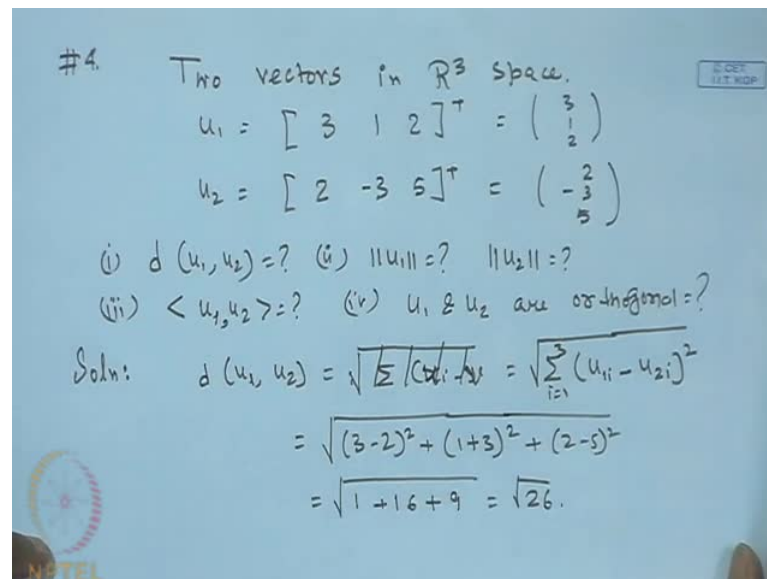 #4. Two vectors in R³ space.
u₁ = [ 3 1 2 ]ᵀ = ( 3 1 2 )
u₂ = [ 2 -3 5 ]ᵀ = ( 2 -3 5 )
(i) d (u₁, u₂) = ? (ii) ||u₁|| = ? ||u₂|| = ?
(iii) < u₁, u₂ > = ? (iv) u₁ & u₂ are orthogonal = ?
Soln: d (u₁, u₂) = √Σ = √Σ_{i=1}^{3} (u₁ᵢ - u₂ᵢ)²
= √(3-2)² + (1+3)² + (2-5)²
= √1 + 16 + 9 = √26.
C CET
I.I.T. KGP
NPTEL